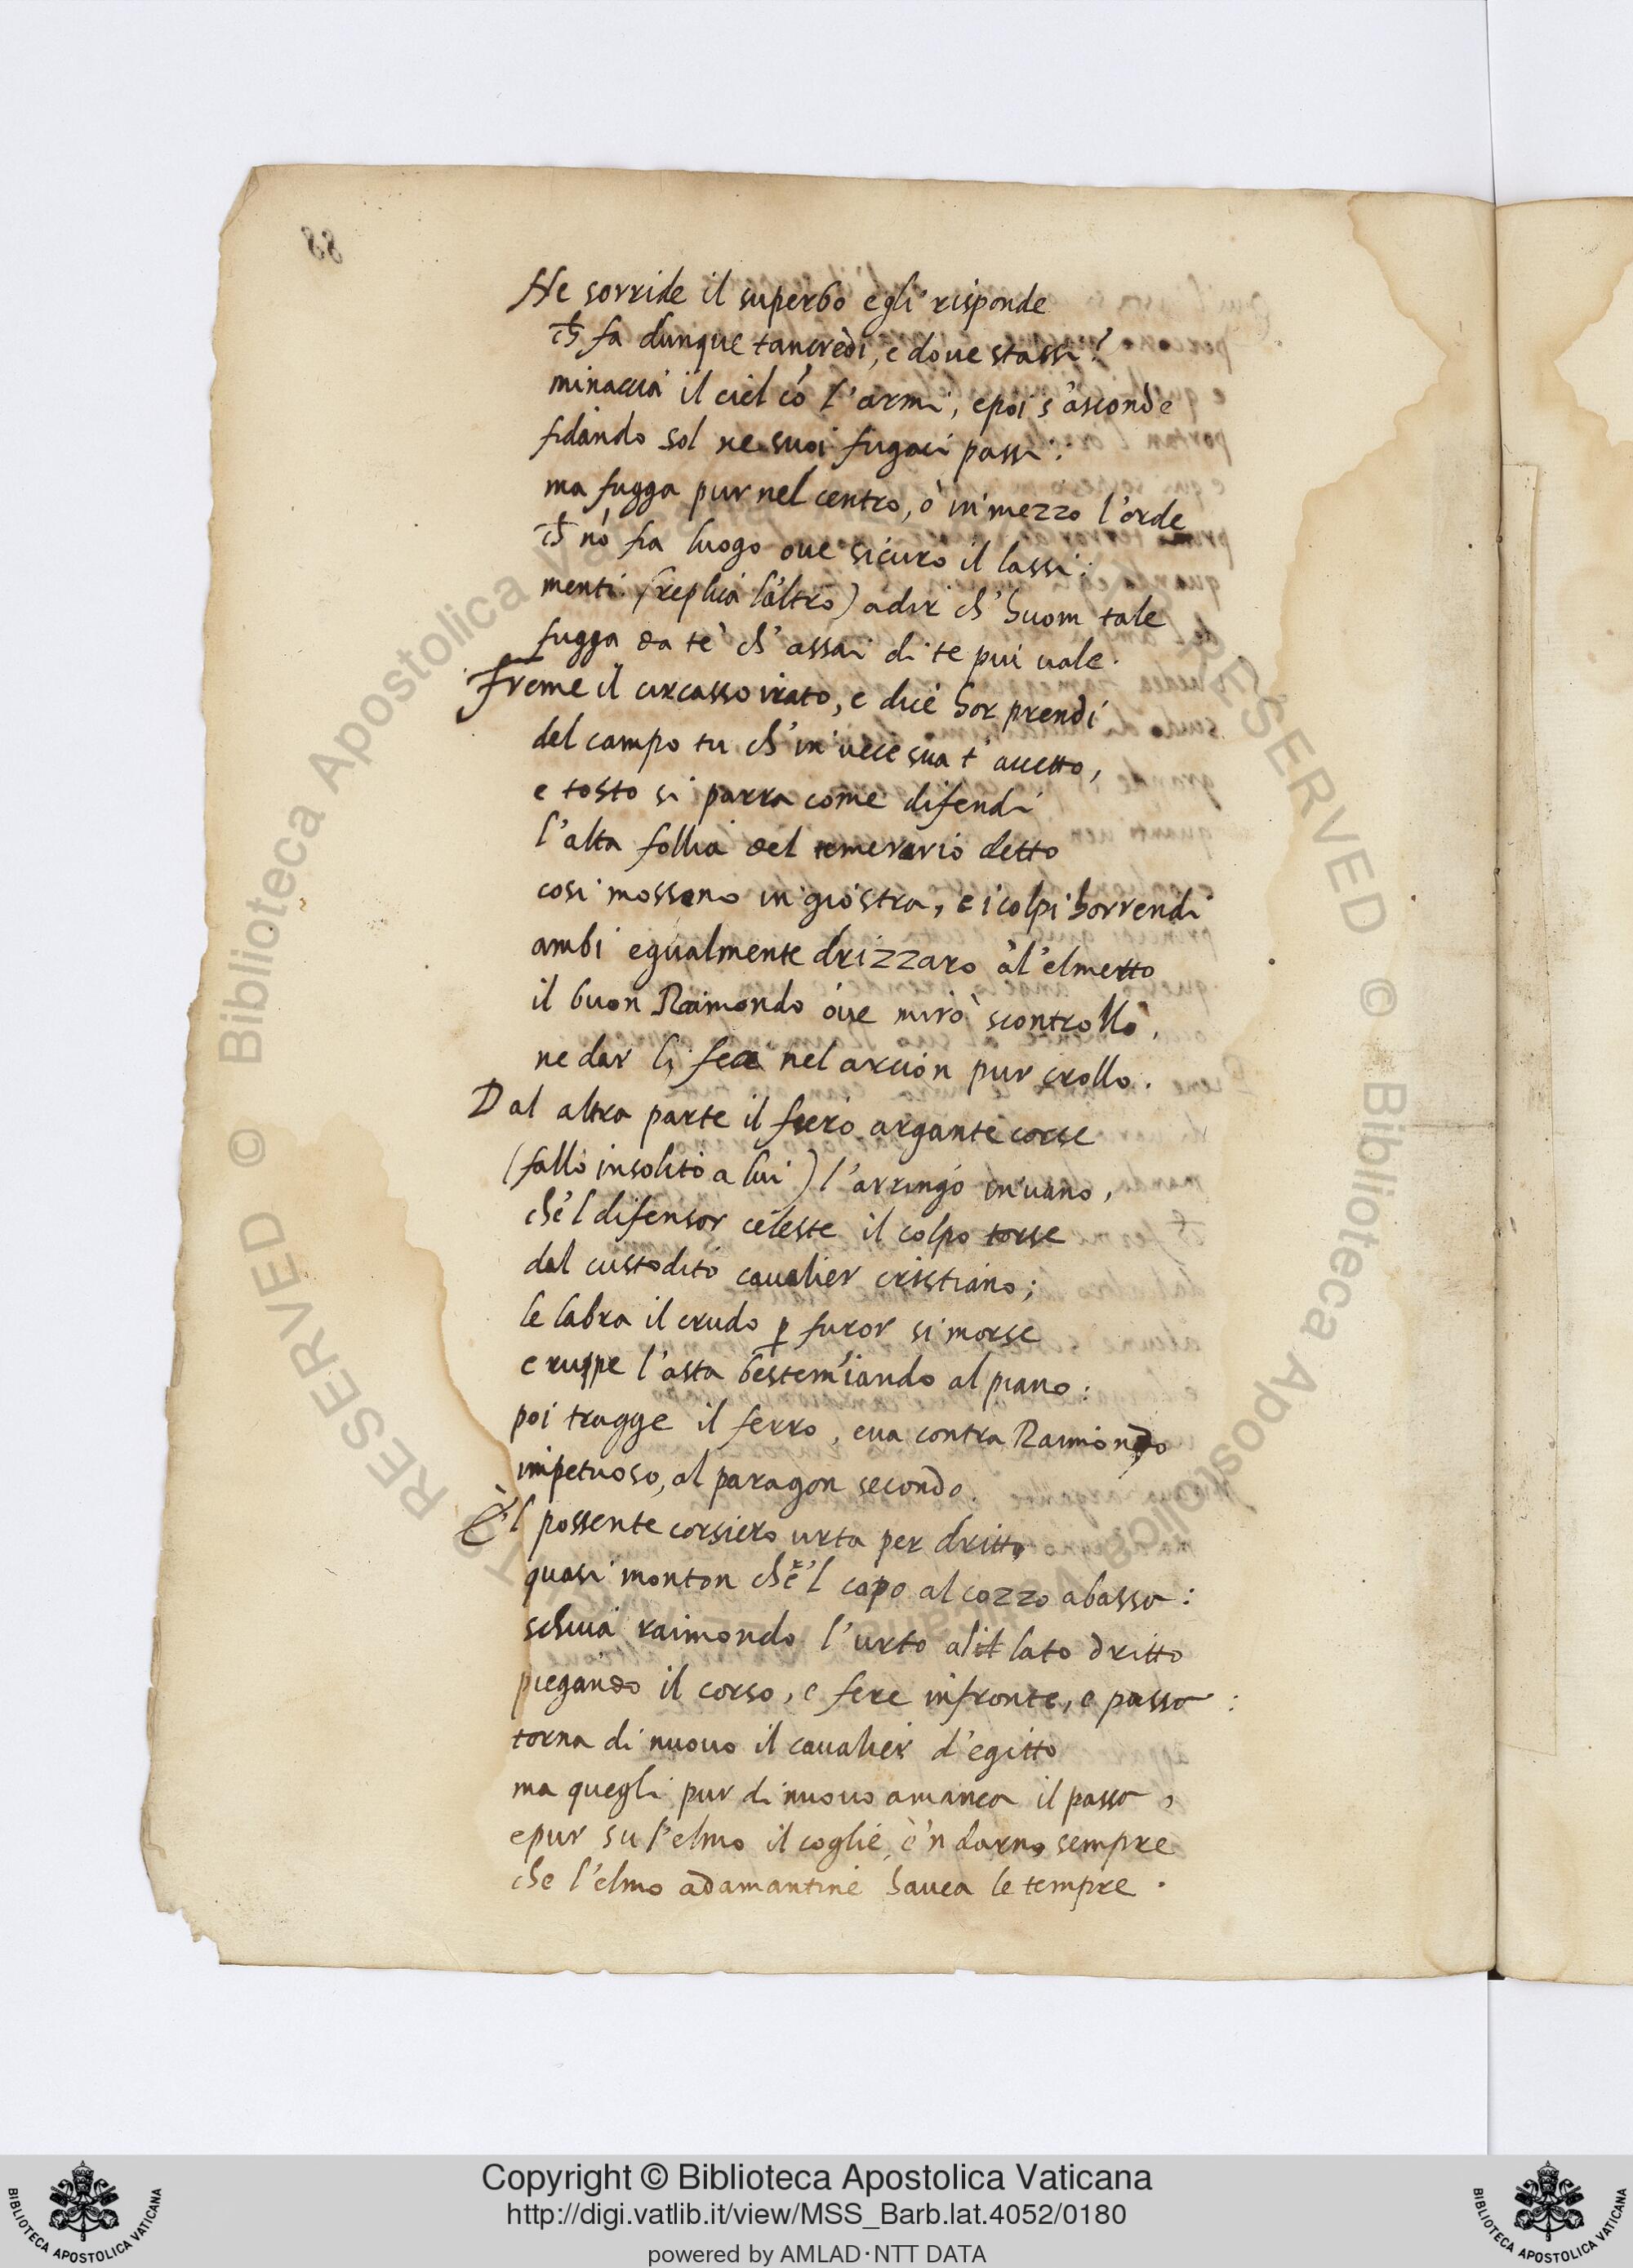 Ne sorride il superbo egli risponde
ch̄ fa dunque tancredi, e doue stassi?
minaccia il ciel cō l'armi, epoi s'asconde
fidando sol ne suoi fugaci passi:
ma fugga pur nel centro, ò in mezzo l'orde
ch̄ nō fia luogo oue sicuro il lassi:
menti (replica l'altro) adir ch'huom tale
fugga da te ch'assai di te piu uale.
Freme il circasso irato, e dice hor prendi
del campo tu ch'in uece sua t'accetto,
e tosto si parra come difendi
l'alta follia del temerario detto
cosi mossono in giostra, e i colpi horrendi
ambi egualmente drizzaro àl'elmetto
il buon Raimondo oue mirò scontrollo,
ne dar li fece nel arcion pur crollo.
Dal altra parte il fiero argante corse
(fallo insolito a lui) l'arringo in uano,
che'l difensor celeste il colpo torse
dal custodito caualier cristiano;
le labra il crudo ꝑ furor si morse
e ruppe l'asta bestemiando al piano:
poi tragge il ferro, eua contra Raimondo
impetuoso, al paragon secondo.
E'l possente corsiero urta per dritto
quasi monton che'l capo al cozzo abassa:
schiua raimondo l'urto al lato dritto
piegando il corso, e fere infronte, e passa:
torna di nuouo il caualier d'egitto
ma quegli pur di nuouo amanca il passa,
epur su l'elmo il coglie, e'n darno sempre
che l'elmo adamantine hauea le tempre.
88
Copyright © Biblioteca Apostolica Vaticana
http://digi.vatlib.it/view/MSS_Barb.lat.4052/0180
powered by AMLAD·NTT DATA
BIBLIOTECA APOSTOLICA VATICANA
BIBLIOTECA APOSTOLICA VATICANA